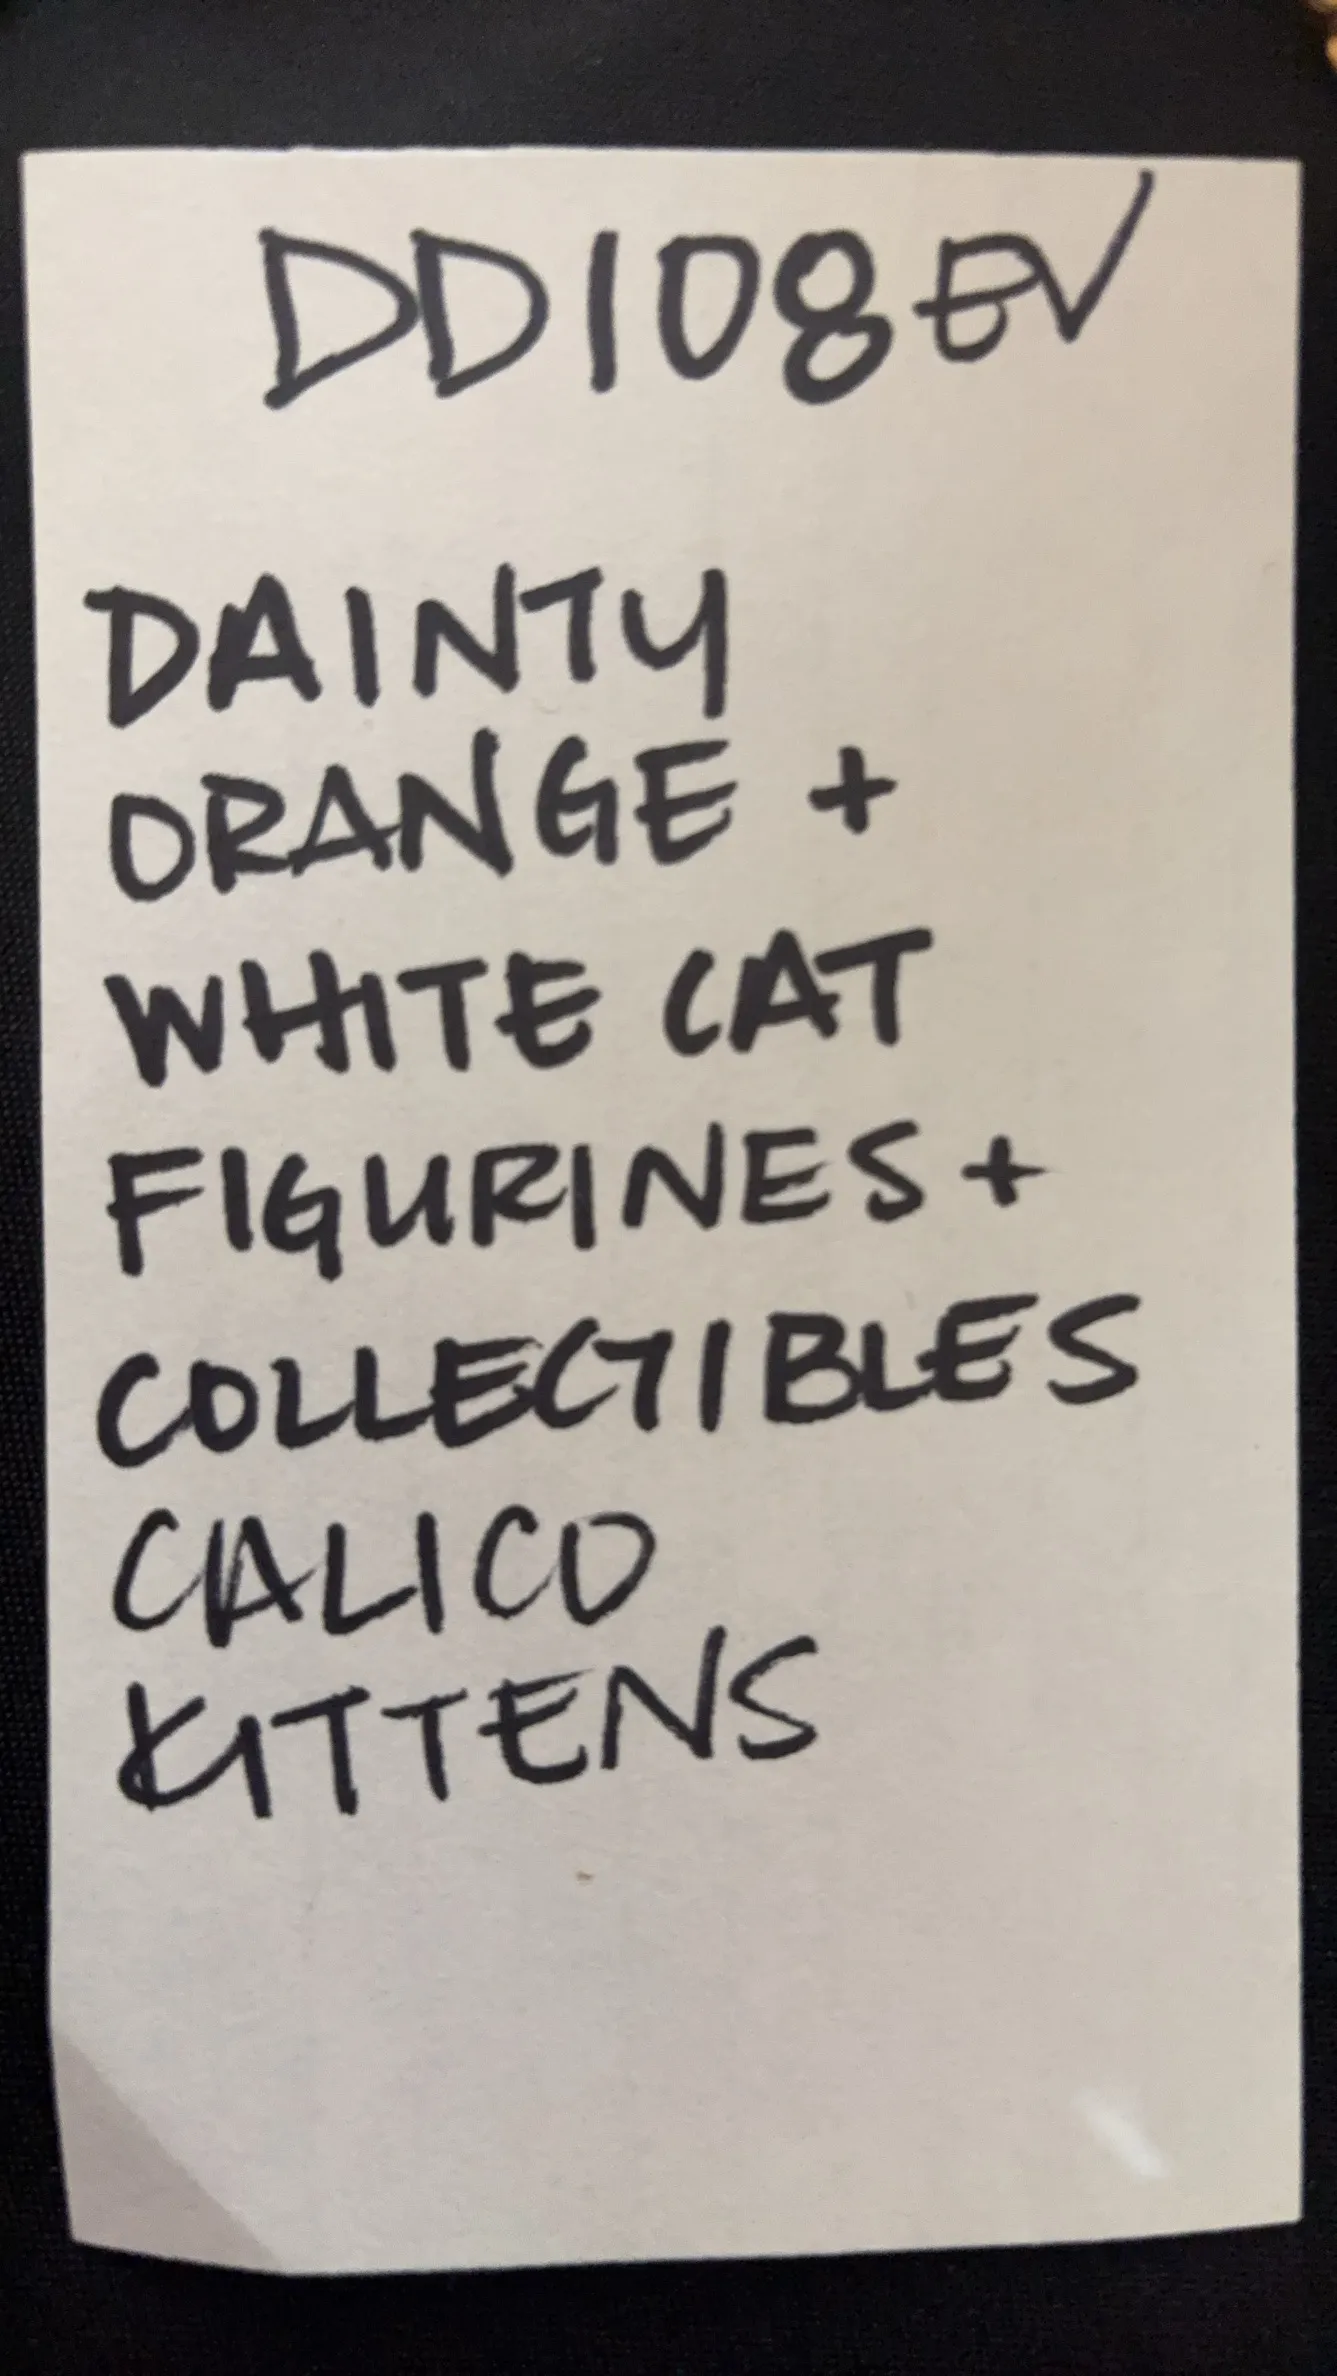 DD108EV
DAINTY
ORANGE +
WHITE CAT
FIGURINES +
COLLECTIBLES
CALICO
KITTENS